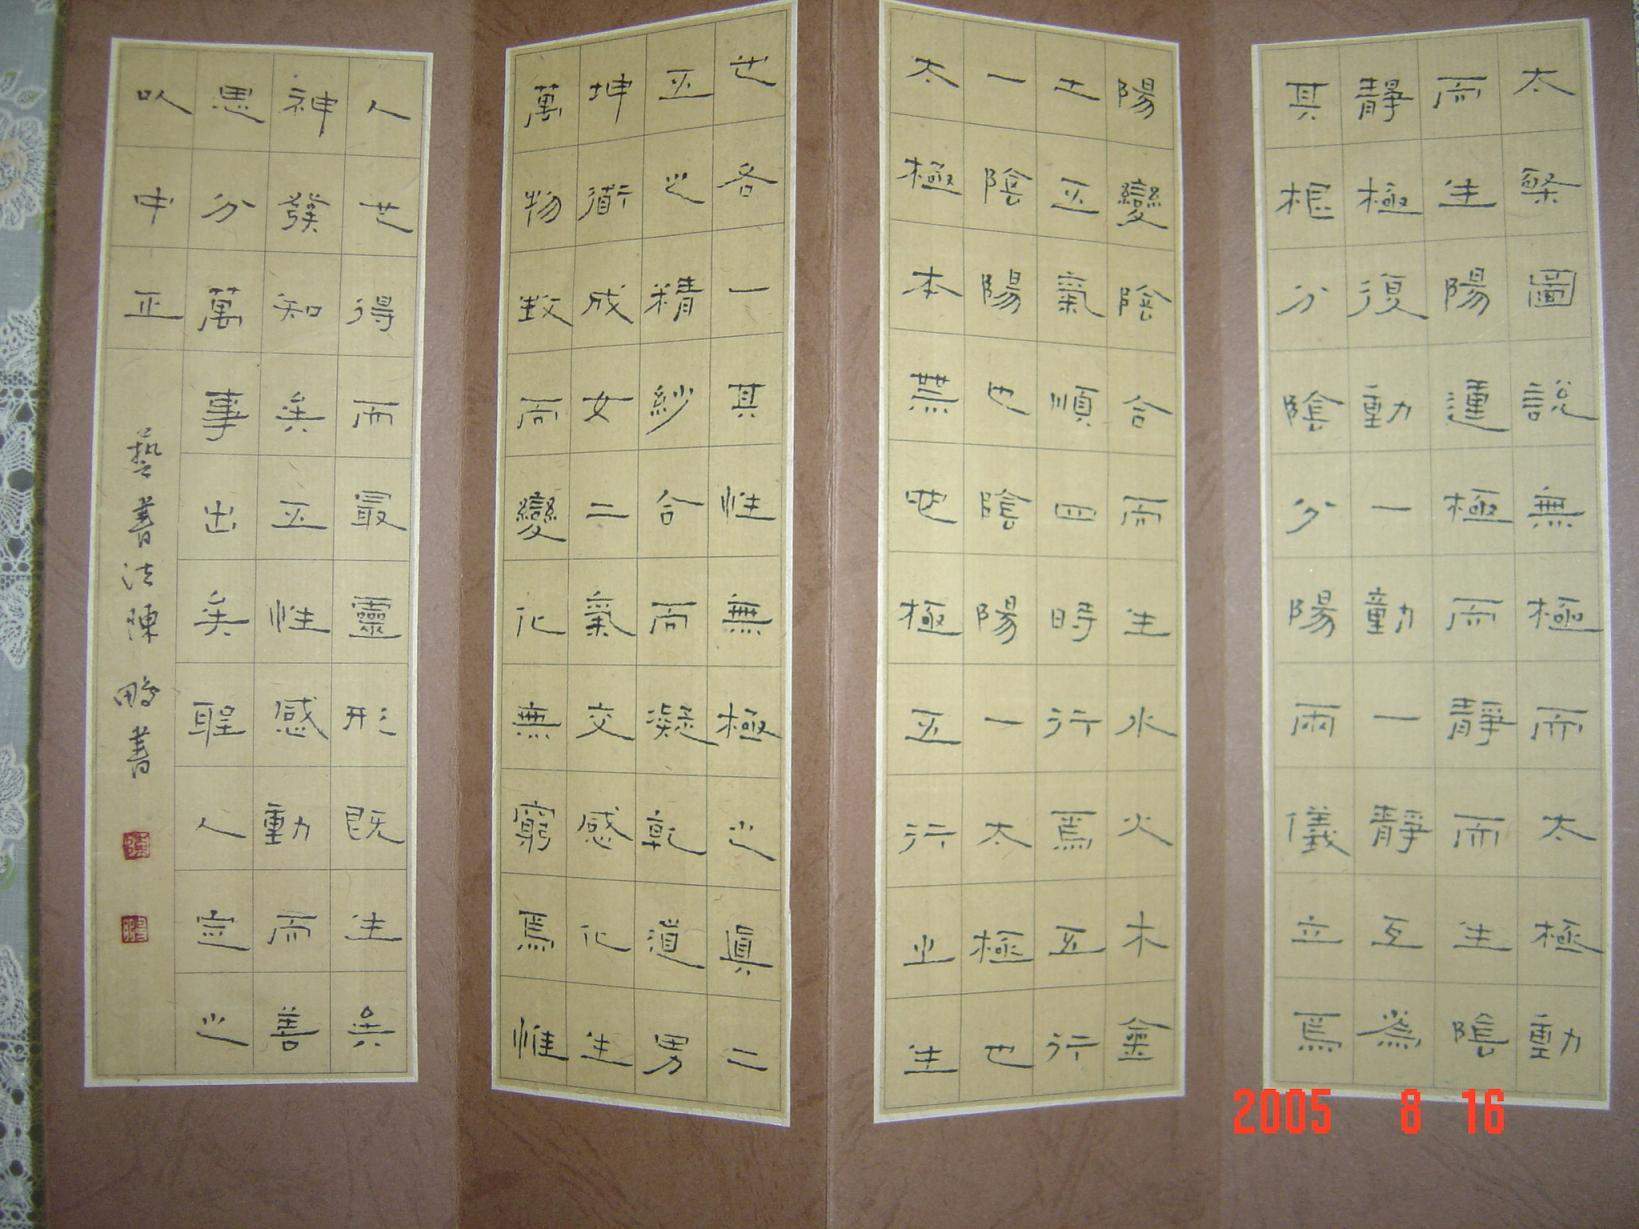 太極圖說無極而太極動
而生陽運極而靜而生陰
靜極復動一動一靜互為
其根分陰分陽兩儀立焉
陽變陰合而生水火木金
土五氣順四時行焉五行
一陰陽也陰陽一太極也
太極本無也極五行之生
也各一其性無極之真二
五之精紗合而凝乾道男
坤衜成女二氣交感化生
萬物致而變化無窮焉惟
人也得而最靈形既生矣
神發知矣五性感動而善
思分萬事出矣聖人定之
以中正
藝書法陳鵬書
2005 8 16